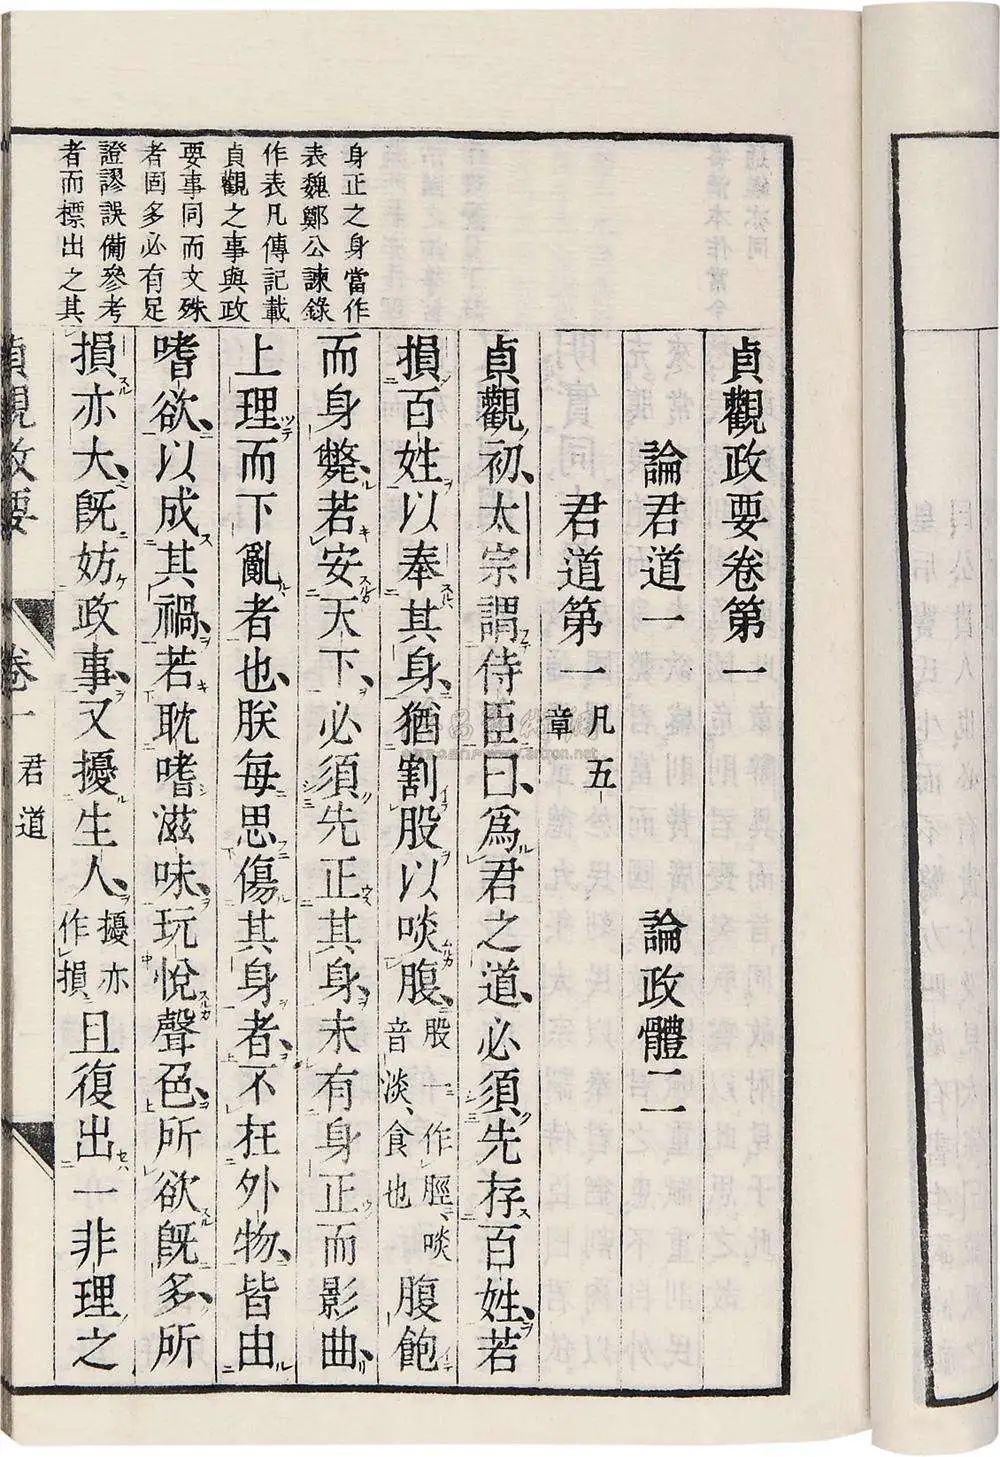 身正之身當作
表魏鄭公諫錄
作表凡傳記載
貞觀之事與政
要事同而文殊
者固多必有足
證謬誤備參考
者而標出之其
貞觀政要卷第一
論君道一 論政體二
君道第一 凡五章
貞觀初、太宗謂侍臣曰、爲君之道、必須先存百姓、若
損百姓以奉其身、猶割股以啖腹、股一作脛、啖音淡、食也 腹飽
而身斃、若安天下、必須先正其身、未有身正而影曲、
上理而下亂者也、朕每思傷其身者、不在外物、皆由
嗜欲、以成其禍、若耽嗜滋味、玩悅聲色、所欲旣多、所
損亦大、旣妨政事、又擾生人、擾亦作損 且復出一非理之
貞觀政要 卷一 君道 一